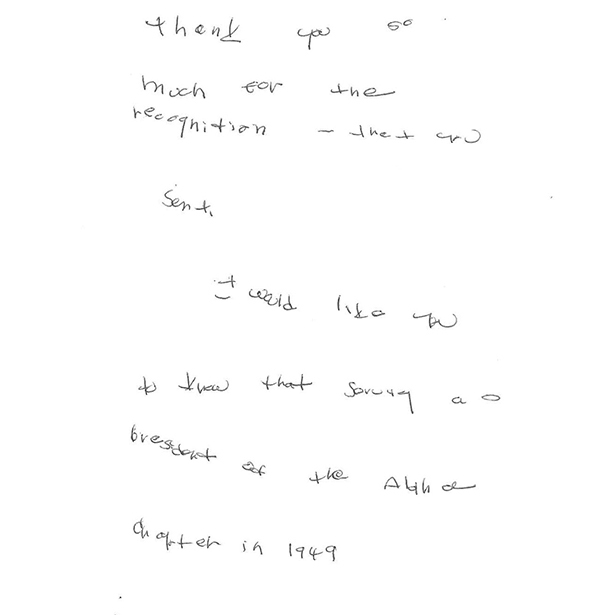 thank you so
much for the
recognition - that you
sent.
I would like you
to know that serving as
president of the Alpha
chapter in 1949